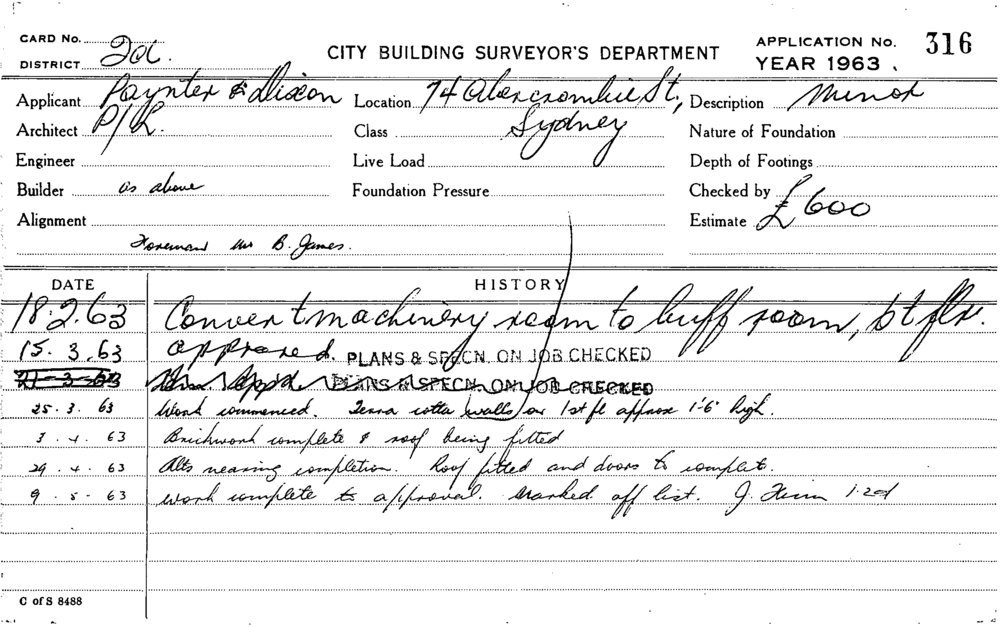 CARD No.
DISTRICT 2d.
CITY BUILDING SURVEYOR'S DEPARTMENT
APPLICATION No. 316
YEAR 1963
Applicant Paynter & Dixon Location 74 Abercrombie St, Description Minor
Architect P/L. Class Sydney Nature of Foundation
Engineer Live Load Depth of Footings
Builder as above Foundation Pressure Checked by
Alignment Estimate £600
Foreman Mr B. James.
DATE HISTORY
18.2.63 Convert machinery room to buff room, 1st flr.
15.3.63 approved. PLANS & SPECN. ON JOB CHECKED
21-3-63 PLANS & SPECN. ON JOB CHECKED
25.3.63 Work commenced. Terra cotta walls on 1st fl approx 1'6" high.
3.4.63 Brickwork complete & roof being fitted
29.4.63 Alts nearing completion. Roof fitted and doors to complete.
9-5-63 Work complete to approval. Marked off list. J.
C of S 8488